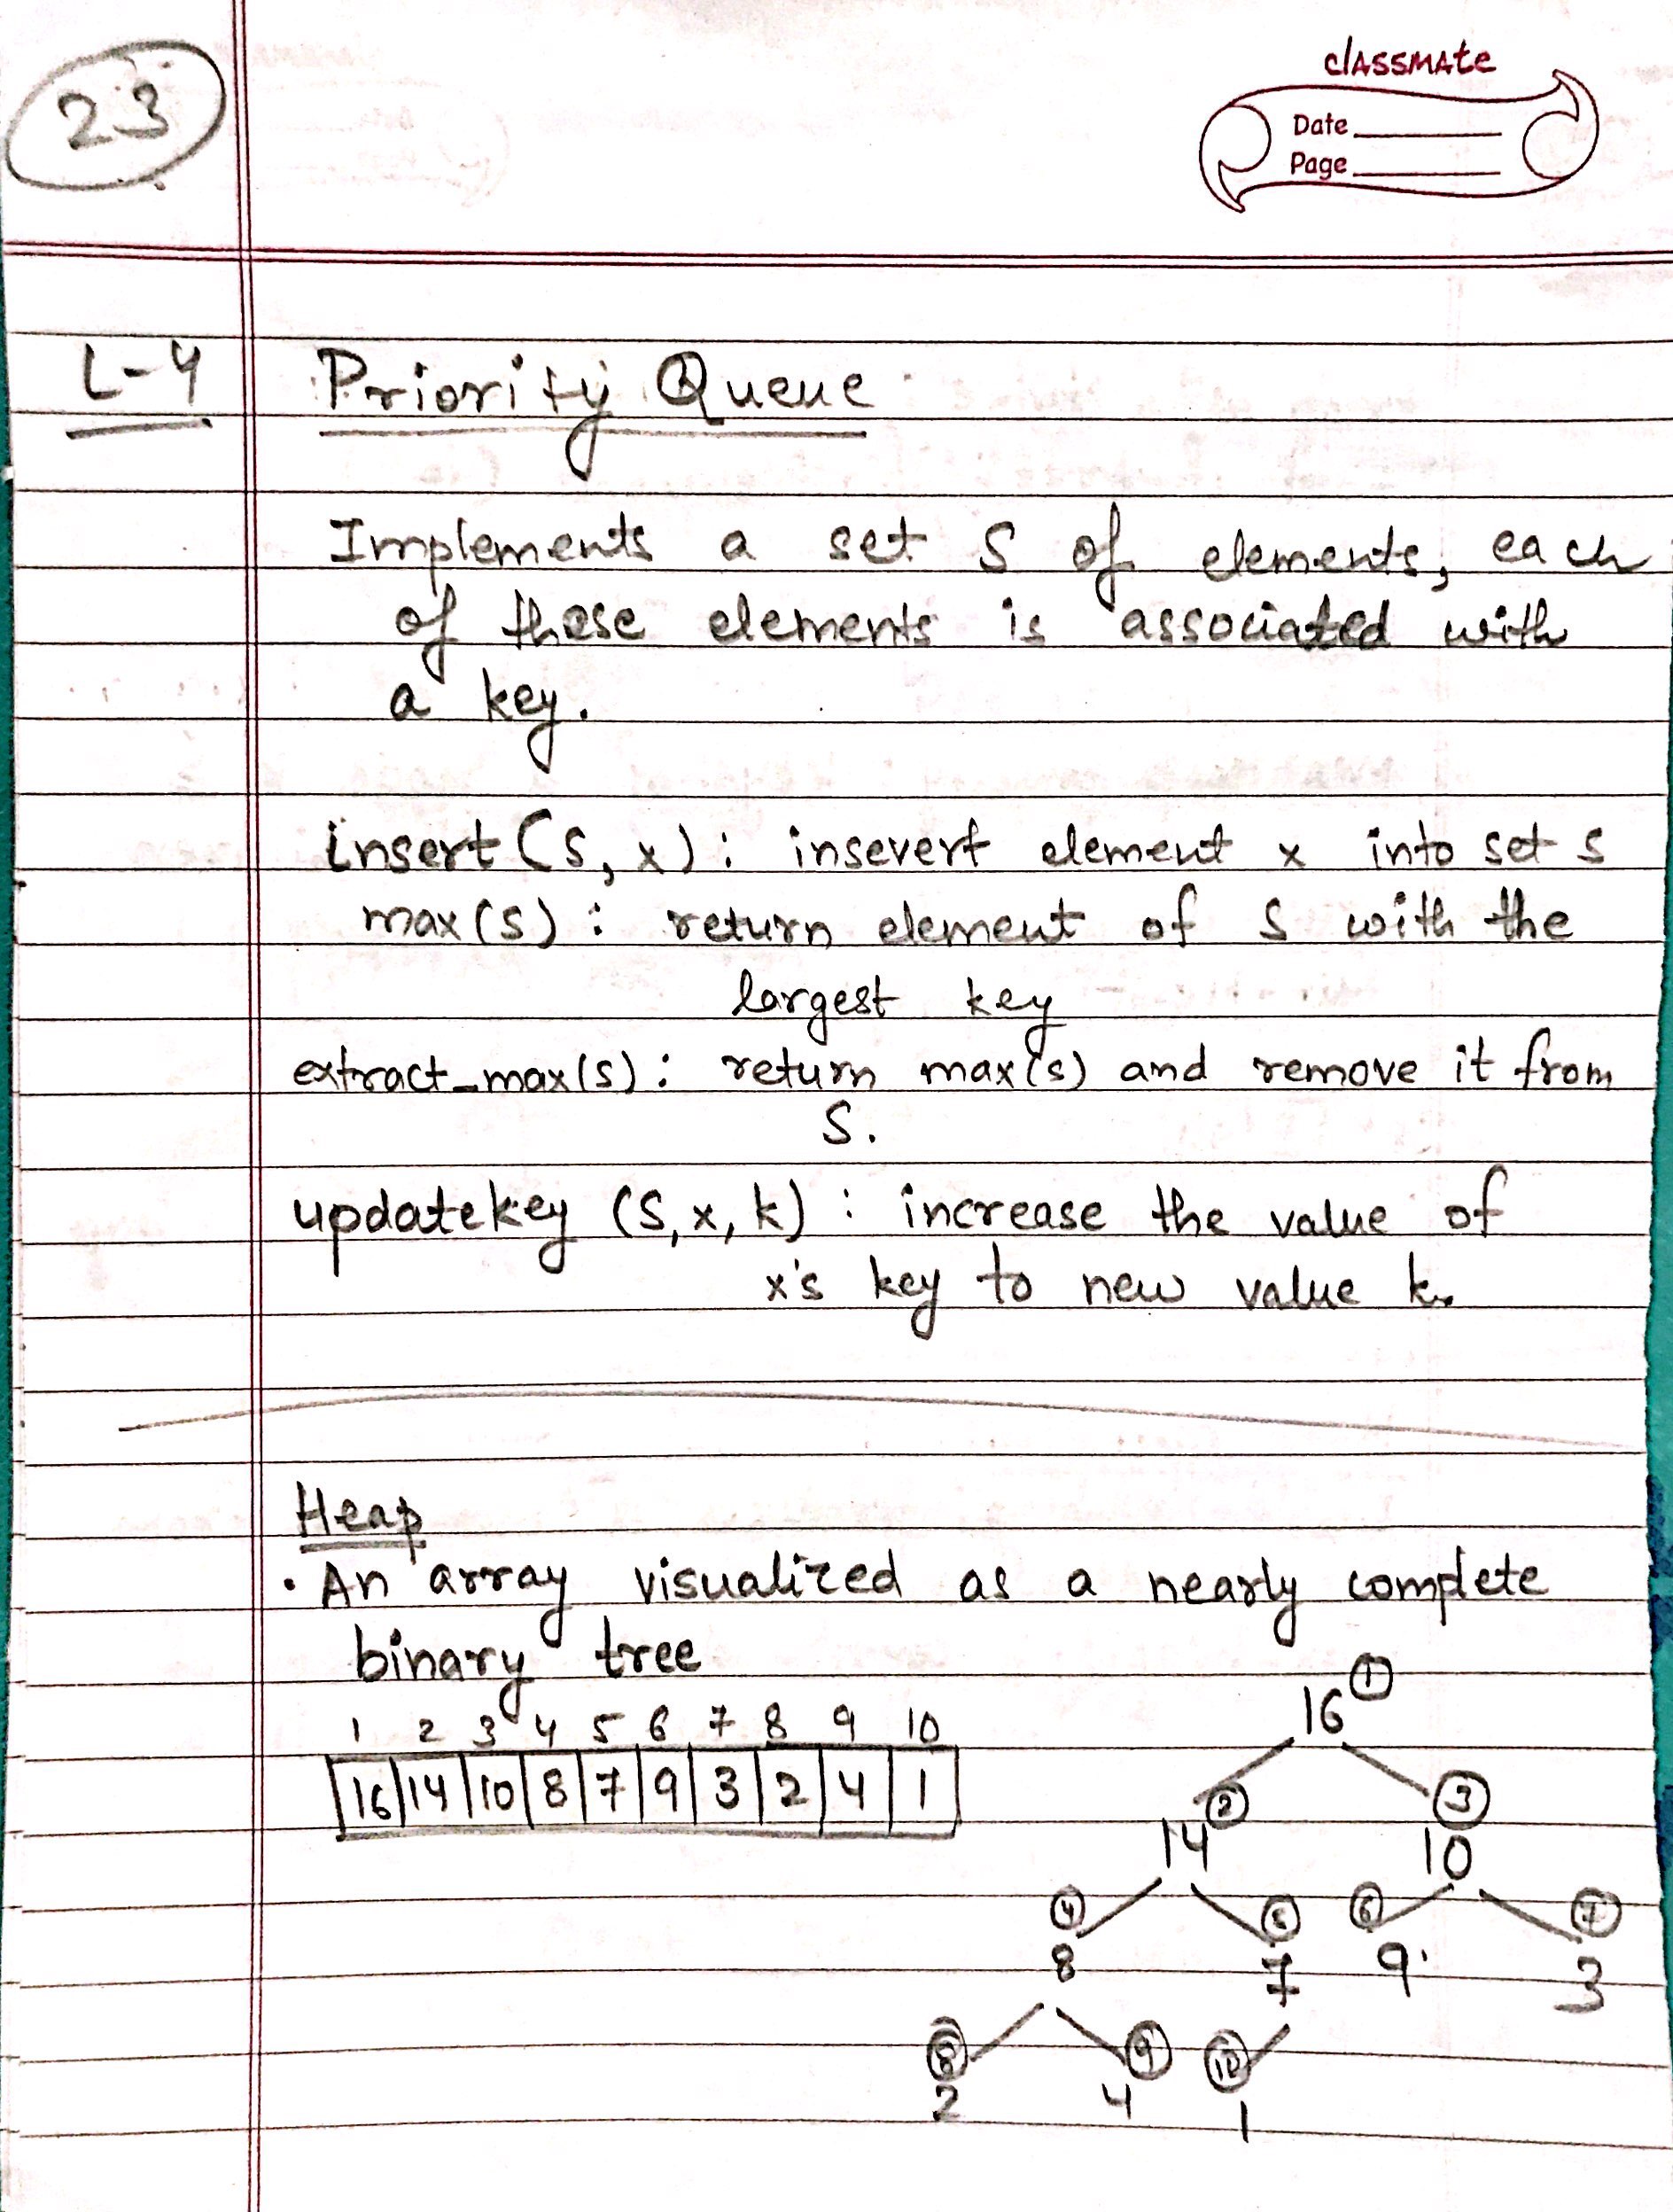 23
classmate
Date
Page
L-4 Priority Queue
Implements a set S of elements, each
of these elements is associated with
a key.
insert (S, x) : insevert element x into set S
max(S) : return element of S with the
largest key
extract_max(S) : return max(S) and remove it from
S.
updatekey (S, x, k) : increase the value of
x's key to new value k.
Heap
· An array visualized as a nearly complete
binary tree
1 2 3 4 5 6 7 8 9 10
16 14 10 8 7 9 3 2 4 1
1
16
2 3
14 10
4 5 6 7
8 7 9 3
8 9 10
2 4 1